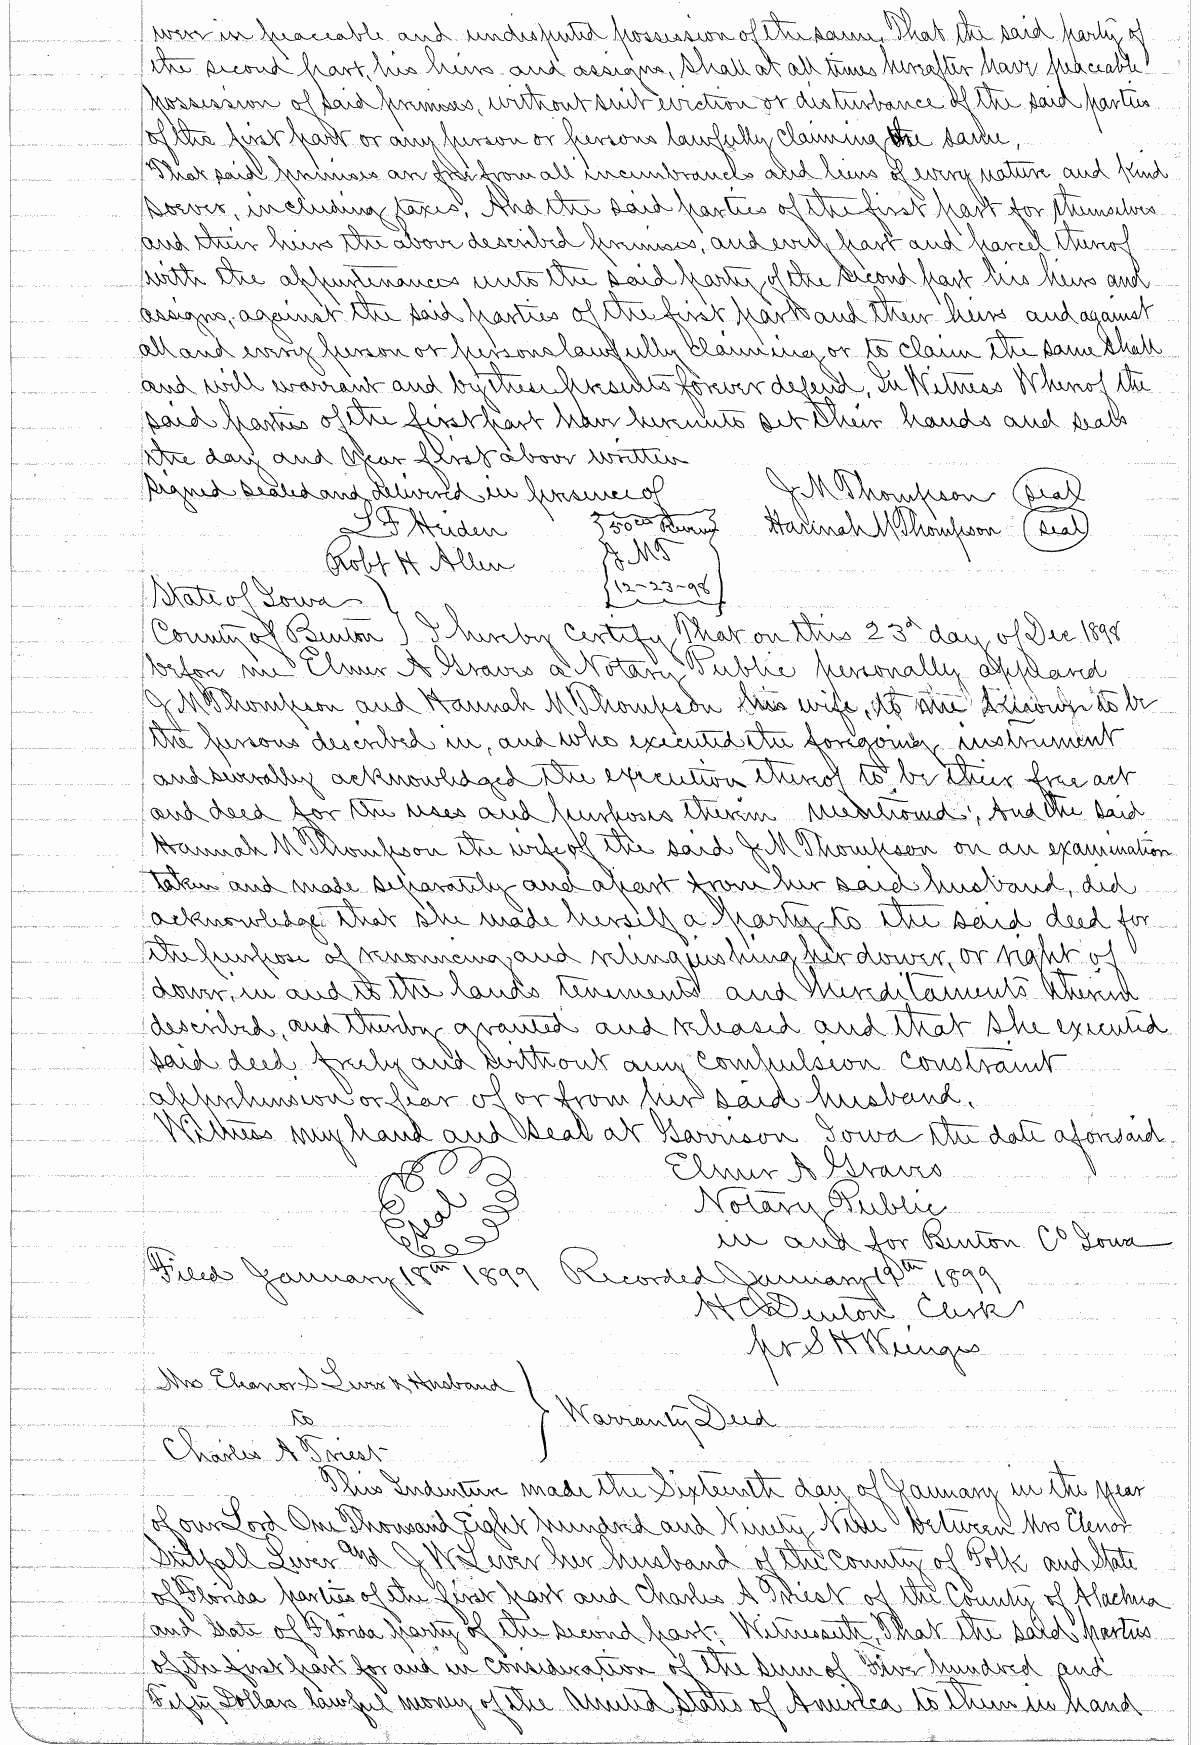 were in peaceable and undisputed possession of the same, That the said party of
the second part, his heirs and assigns, shall at all times hereafter have peaceable
possession of said premises, without suit eviction or disturbance of the said parties
of the first part or any person or persons lawfully claiming the same,
That said premises are free from all incumbrances and liens of every nature and kind
soever, including taxes, And the said parties of the first part for themselves
and their heirs the above described premises, and every part and parcel thereof
with the appurtenances unto the said party of the second part his heirs and
assigns, against the said parties of the first part and their heirs and against
all and every person or persons lawfully claiming or to claim the same shall
and will warrant and by these presents forever defend, In Witness Whereof the
said parties of the first part have hereunto set their hands and seals
the day and year first above written
Signed sealed and delivered in presence of J M Thompson (seal)
50cts Hannah M Thompson (seal)
Robt H Allen J. M T
12-23-98
State of Iowa
County of Benton } I hereby certify That on this 23d day of Dec 1898
before me Elmer A Graves a Notary Public personally appeared
J M Thompson and Hannah M Thompson his wife, to me known to be
the persons described in, and who executed the foregoing instrument
and severally acknowledged the execution thereof to be their free act
and deed for the uses and purposes therein mentioned; And the said
Hannah M Thompson the wife of the said J M Thompson on an examination
taken and made separately and apart from her said husband, did
acknowledge that she made herself a party to the said deed for
the purpose of renouncing and relinquishing her dower, or right of
dower, in and to the lands tenements and hereditaments therein
described, and thereby granted and released and that she executed
said deed freely and without any compulsion constraint
apprehension or fear of or from her said husband.
Witness my hand and seal at Garrison Iowa the date aforesaid.
Elmer A Graves
Seal Notary Public
in and for Benton Co Iowa
Filed January 18th 1899 Recorded January 19th 1899
H C Denton Clerk
pr S H Wienges
Mrs Elanor S Lever & Husband
to } Warranty Deed
Charles A Priest
This Indenture made the Sixteenth day of January in the year
of our Lord One Thousand Eight hundred and Ninety Nine between Mrs Elenor
Lever and J W Lever her husband of the County of Polk and State
of Florida parties of the first part and Charles A Priest of the County of Alachua
and State of Florida party of the second part; Witnesseth, That the said parties
of the first part for and in consideration of the sum of Five hundred and
Fifty Dollars lawful money of the United States of America to them in hand